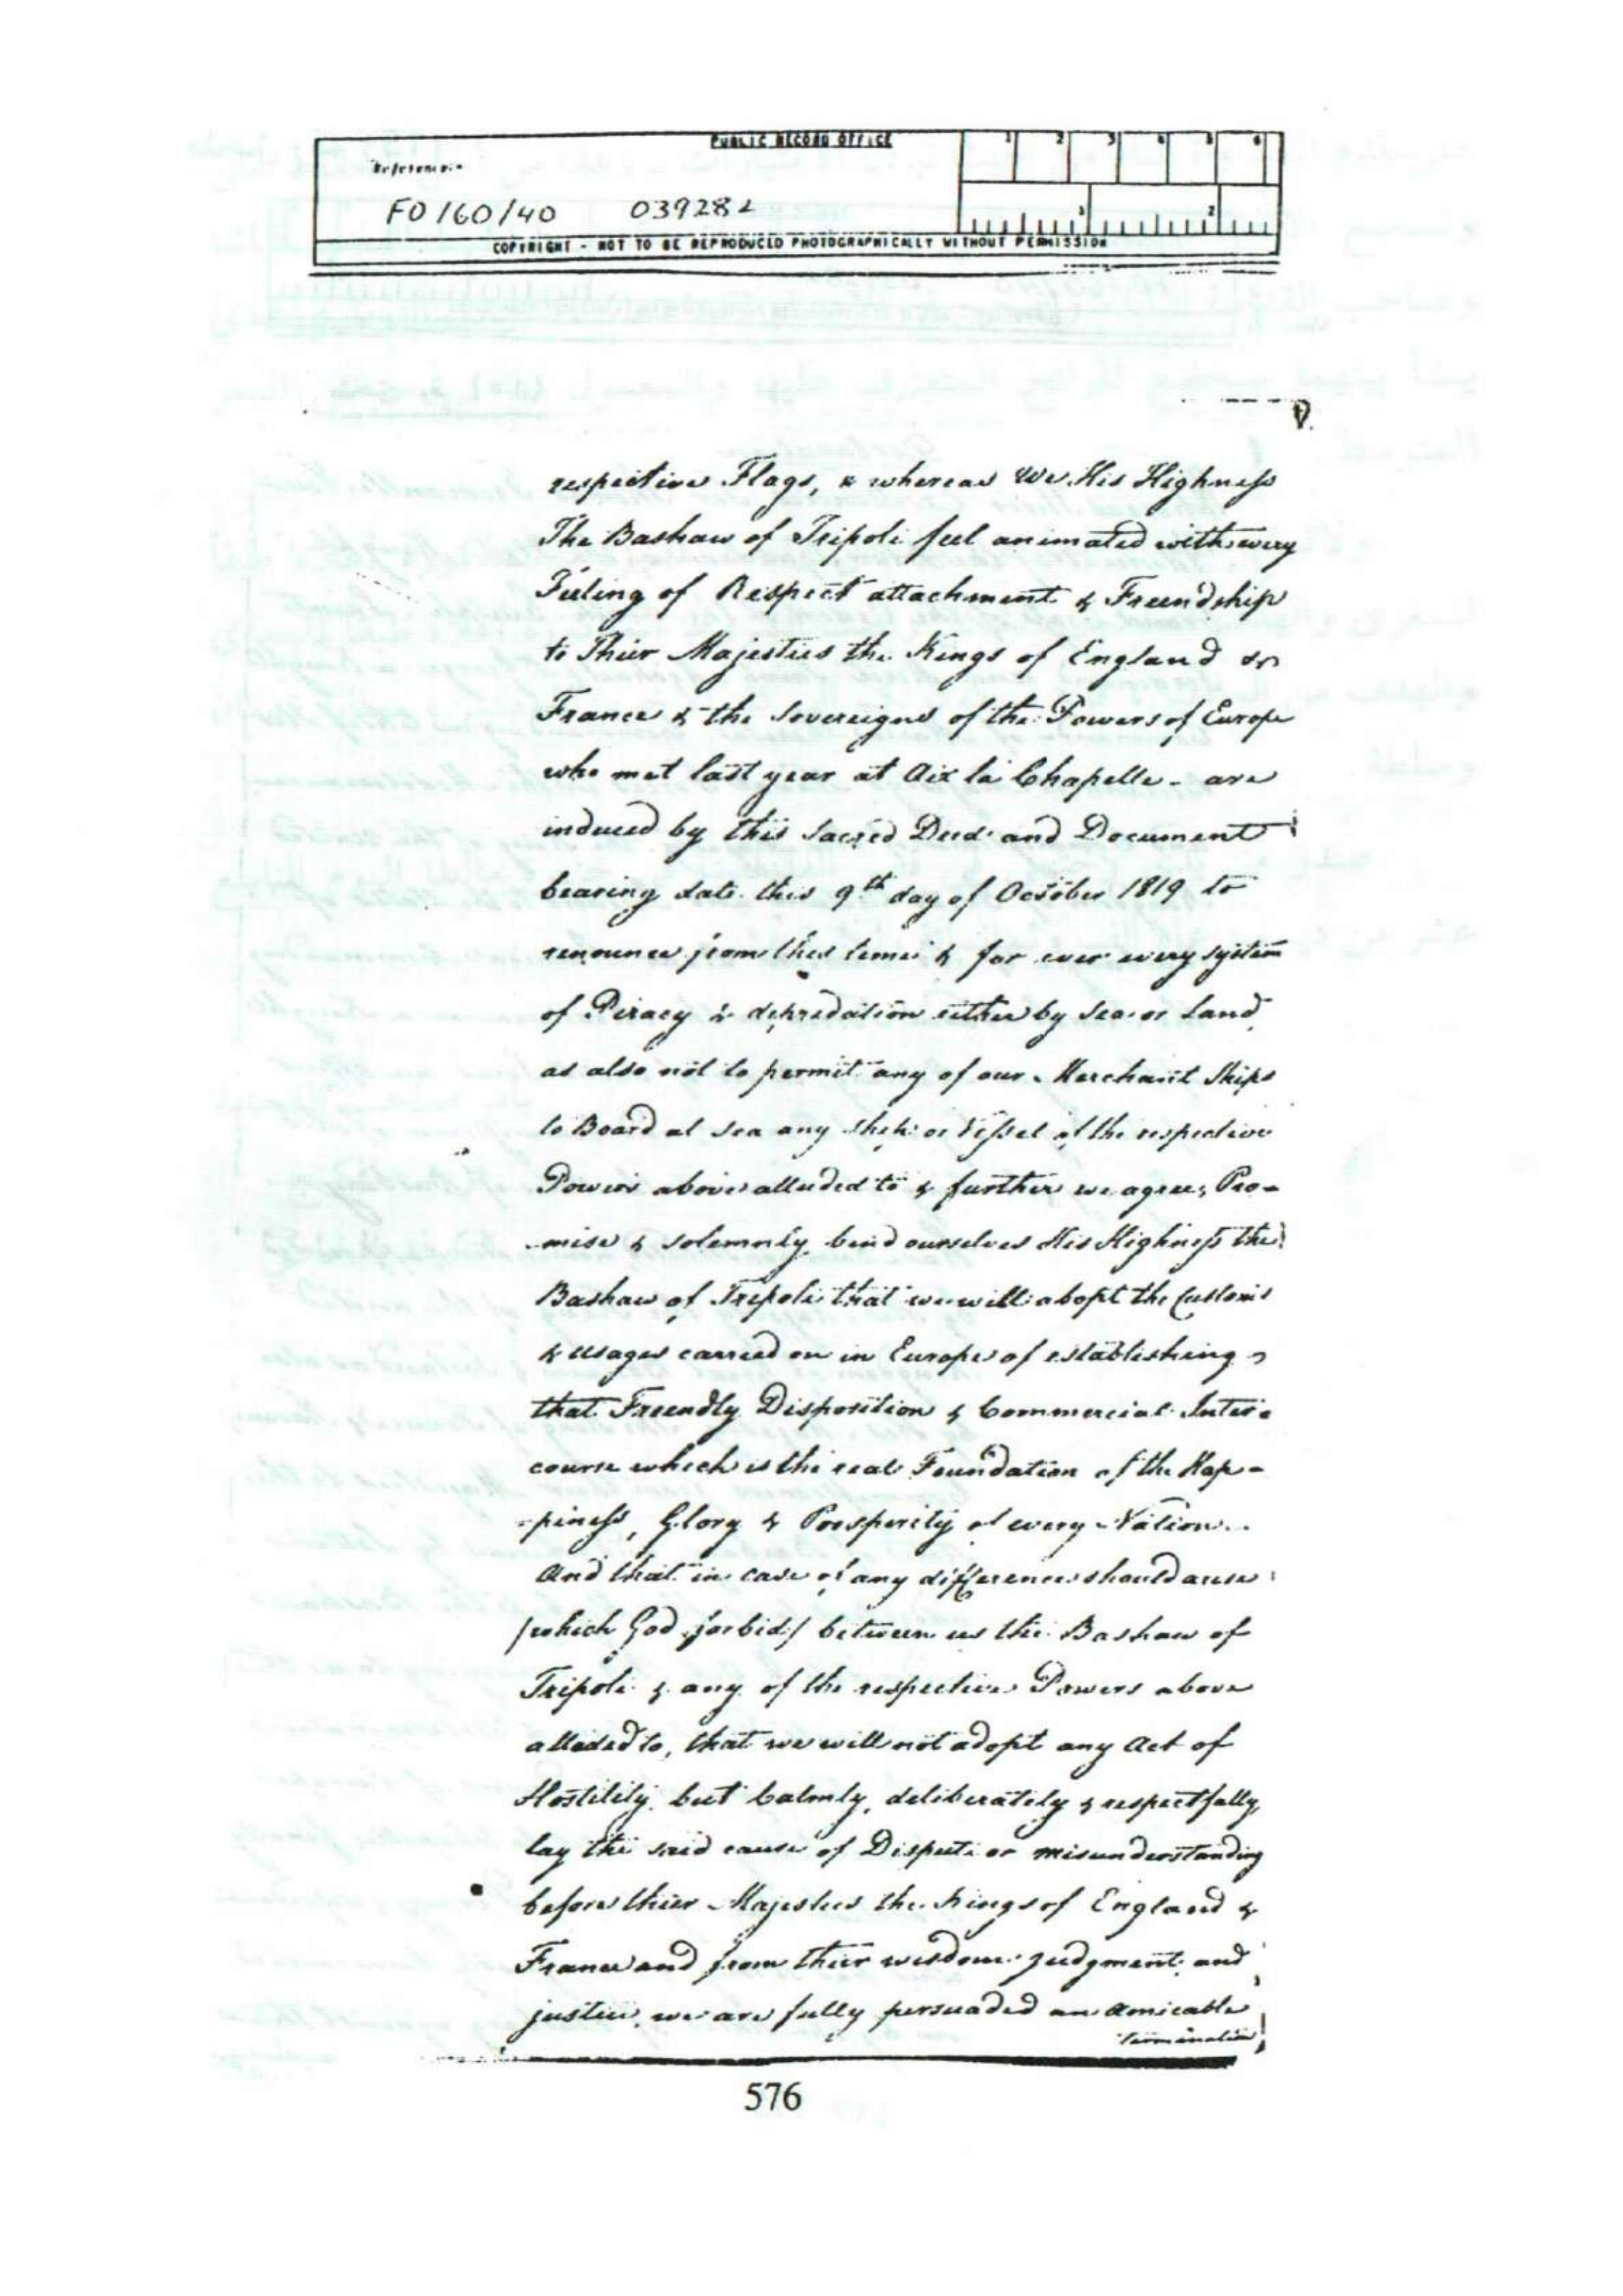 PUBLIC RECORD OFFICE
1 2 3 4 5 6
Reference:-
FO 160/40 039282
1 2
COPYRIGHT - NOT TO BE REPRODUCED PHOTOGRAPHICALLY WITHOUT PERMISSION
respective Flags, & whereas We His Highness
The Bashaw of Tripoli feel animated with every
Feeling of Respect attachment & Freendship
to Thier Majesties the Kings of England &
France & the Sovereigns of the Powers of Europe
who met last year at Aix la Chapelle - are
induced by this Sacred Deed and Document
bearing date this 9th day of October 1819 to
renounce from this time & for ever every system
of Piracy & depredation either by Sea or Land
as also not to permit any of our Merchant Ships
to Board at Sea any Ship or Vessel of the respective
Powers above alluded to & further we agree, Pro-
-mise & solemnly bind ourselves His Highness the
Bashaw of Tripoli that we will adopt the Customs
& usages carried on in Europe of establishing
that Freendly Disposition & Commercial Inter-
course which is the real Foundation of the Hap-
-piness, Glory & Prosperity of every Nation.
And that in case of any difference should arise
/which God forbid/ between us the Bashaw of
Tripoli & any of the respective Powers above
alluded to, that we will not adopt any Act of
Hostility but Calmly, deliberately & respectfully
lay the said cause of Dispute or misunderstanding
before thier Majesties the Kings of England &
France and from thier wisdom judgment and
justice, we are fully persuaded an amicable
termination
576